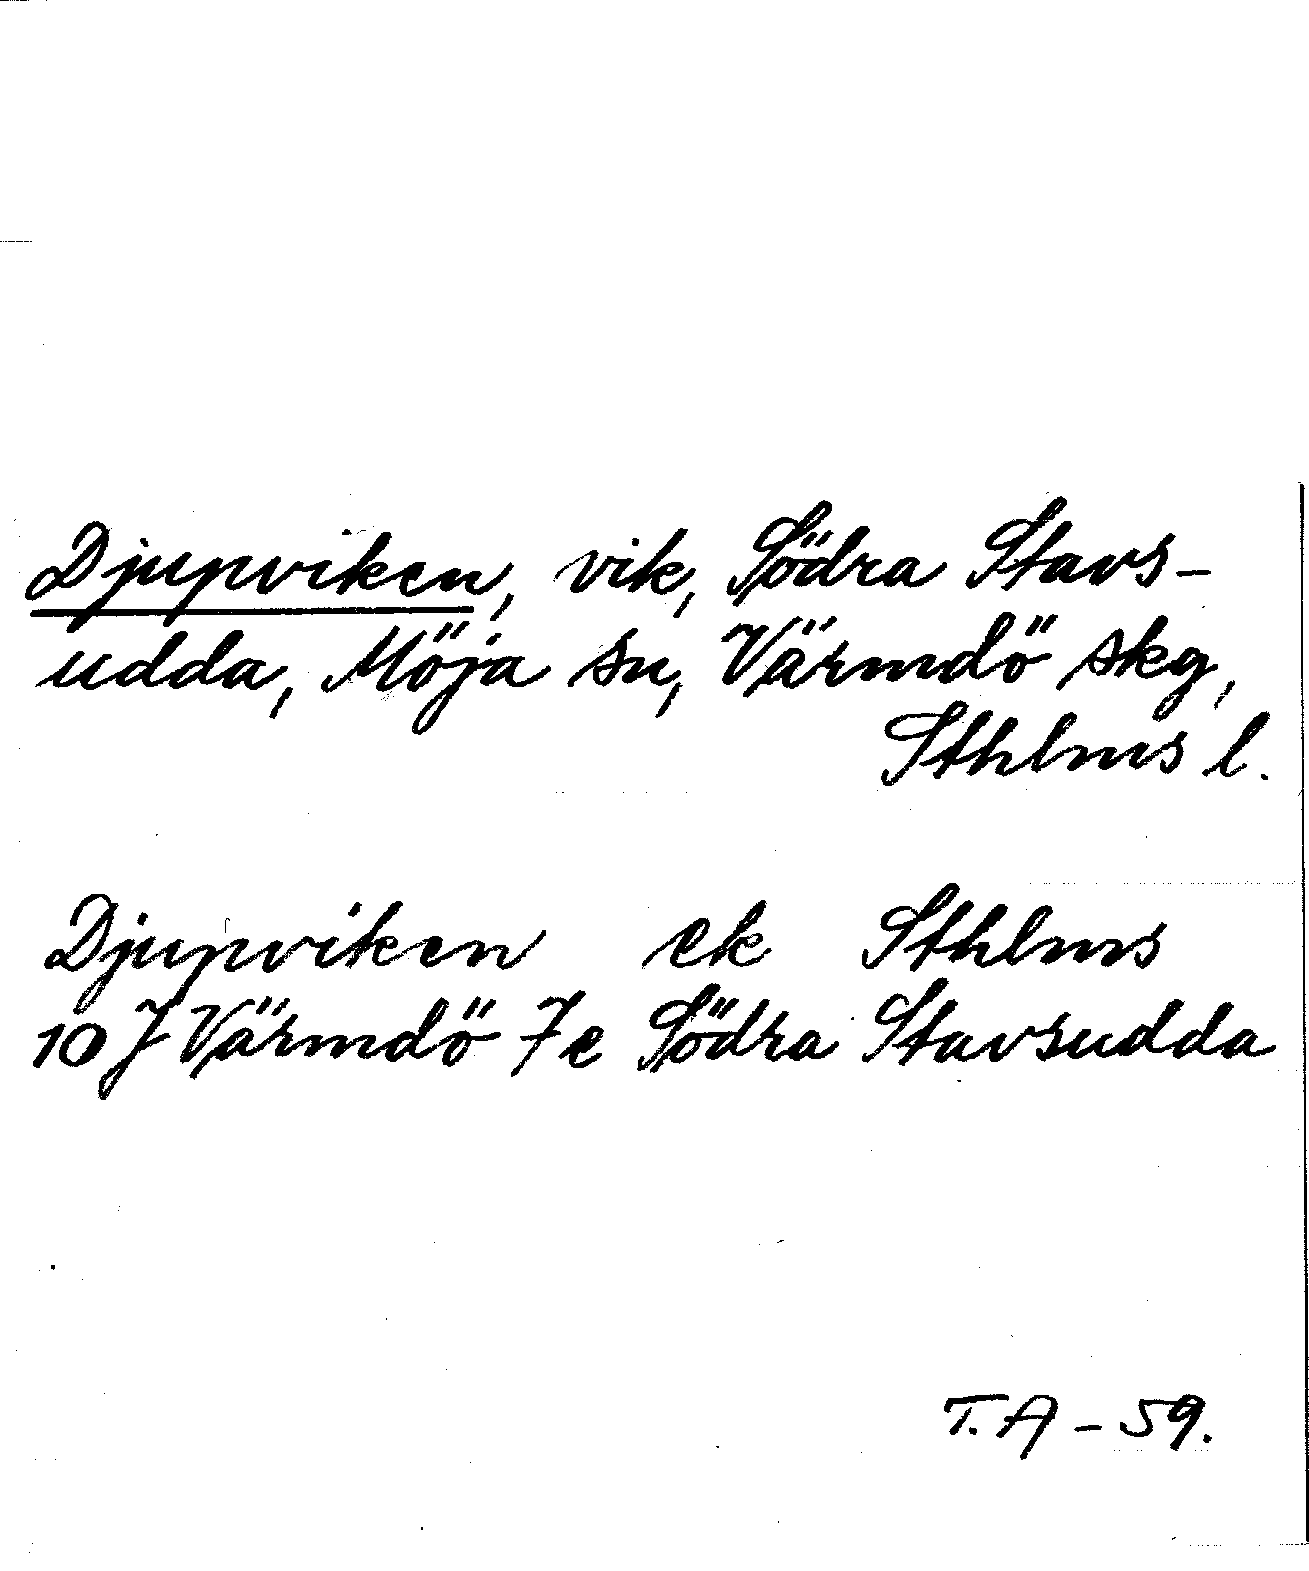 Djupviken, vik, Södra Stavs-
udda, Möja sn, Värmdö skg,
Sthlms l.
Djupviken ek Sthlms
10 J Värmdö 7 e Södra Stavsudda
T. A - 59.